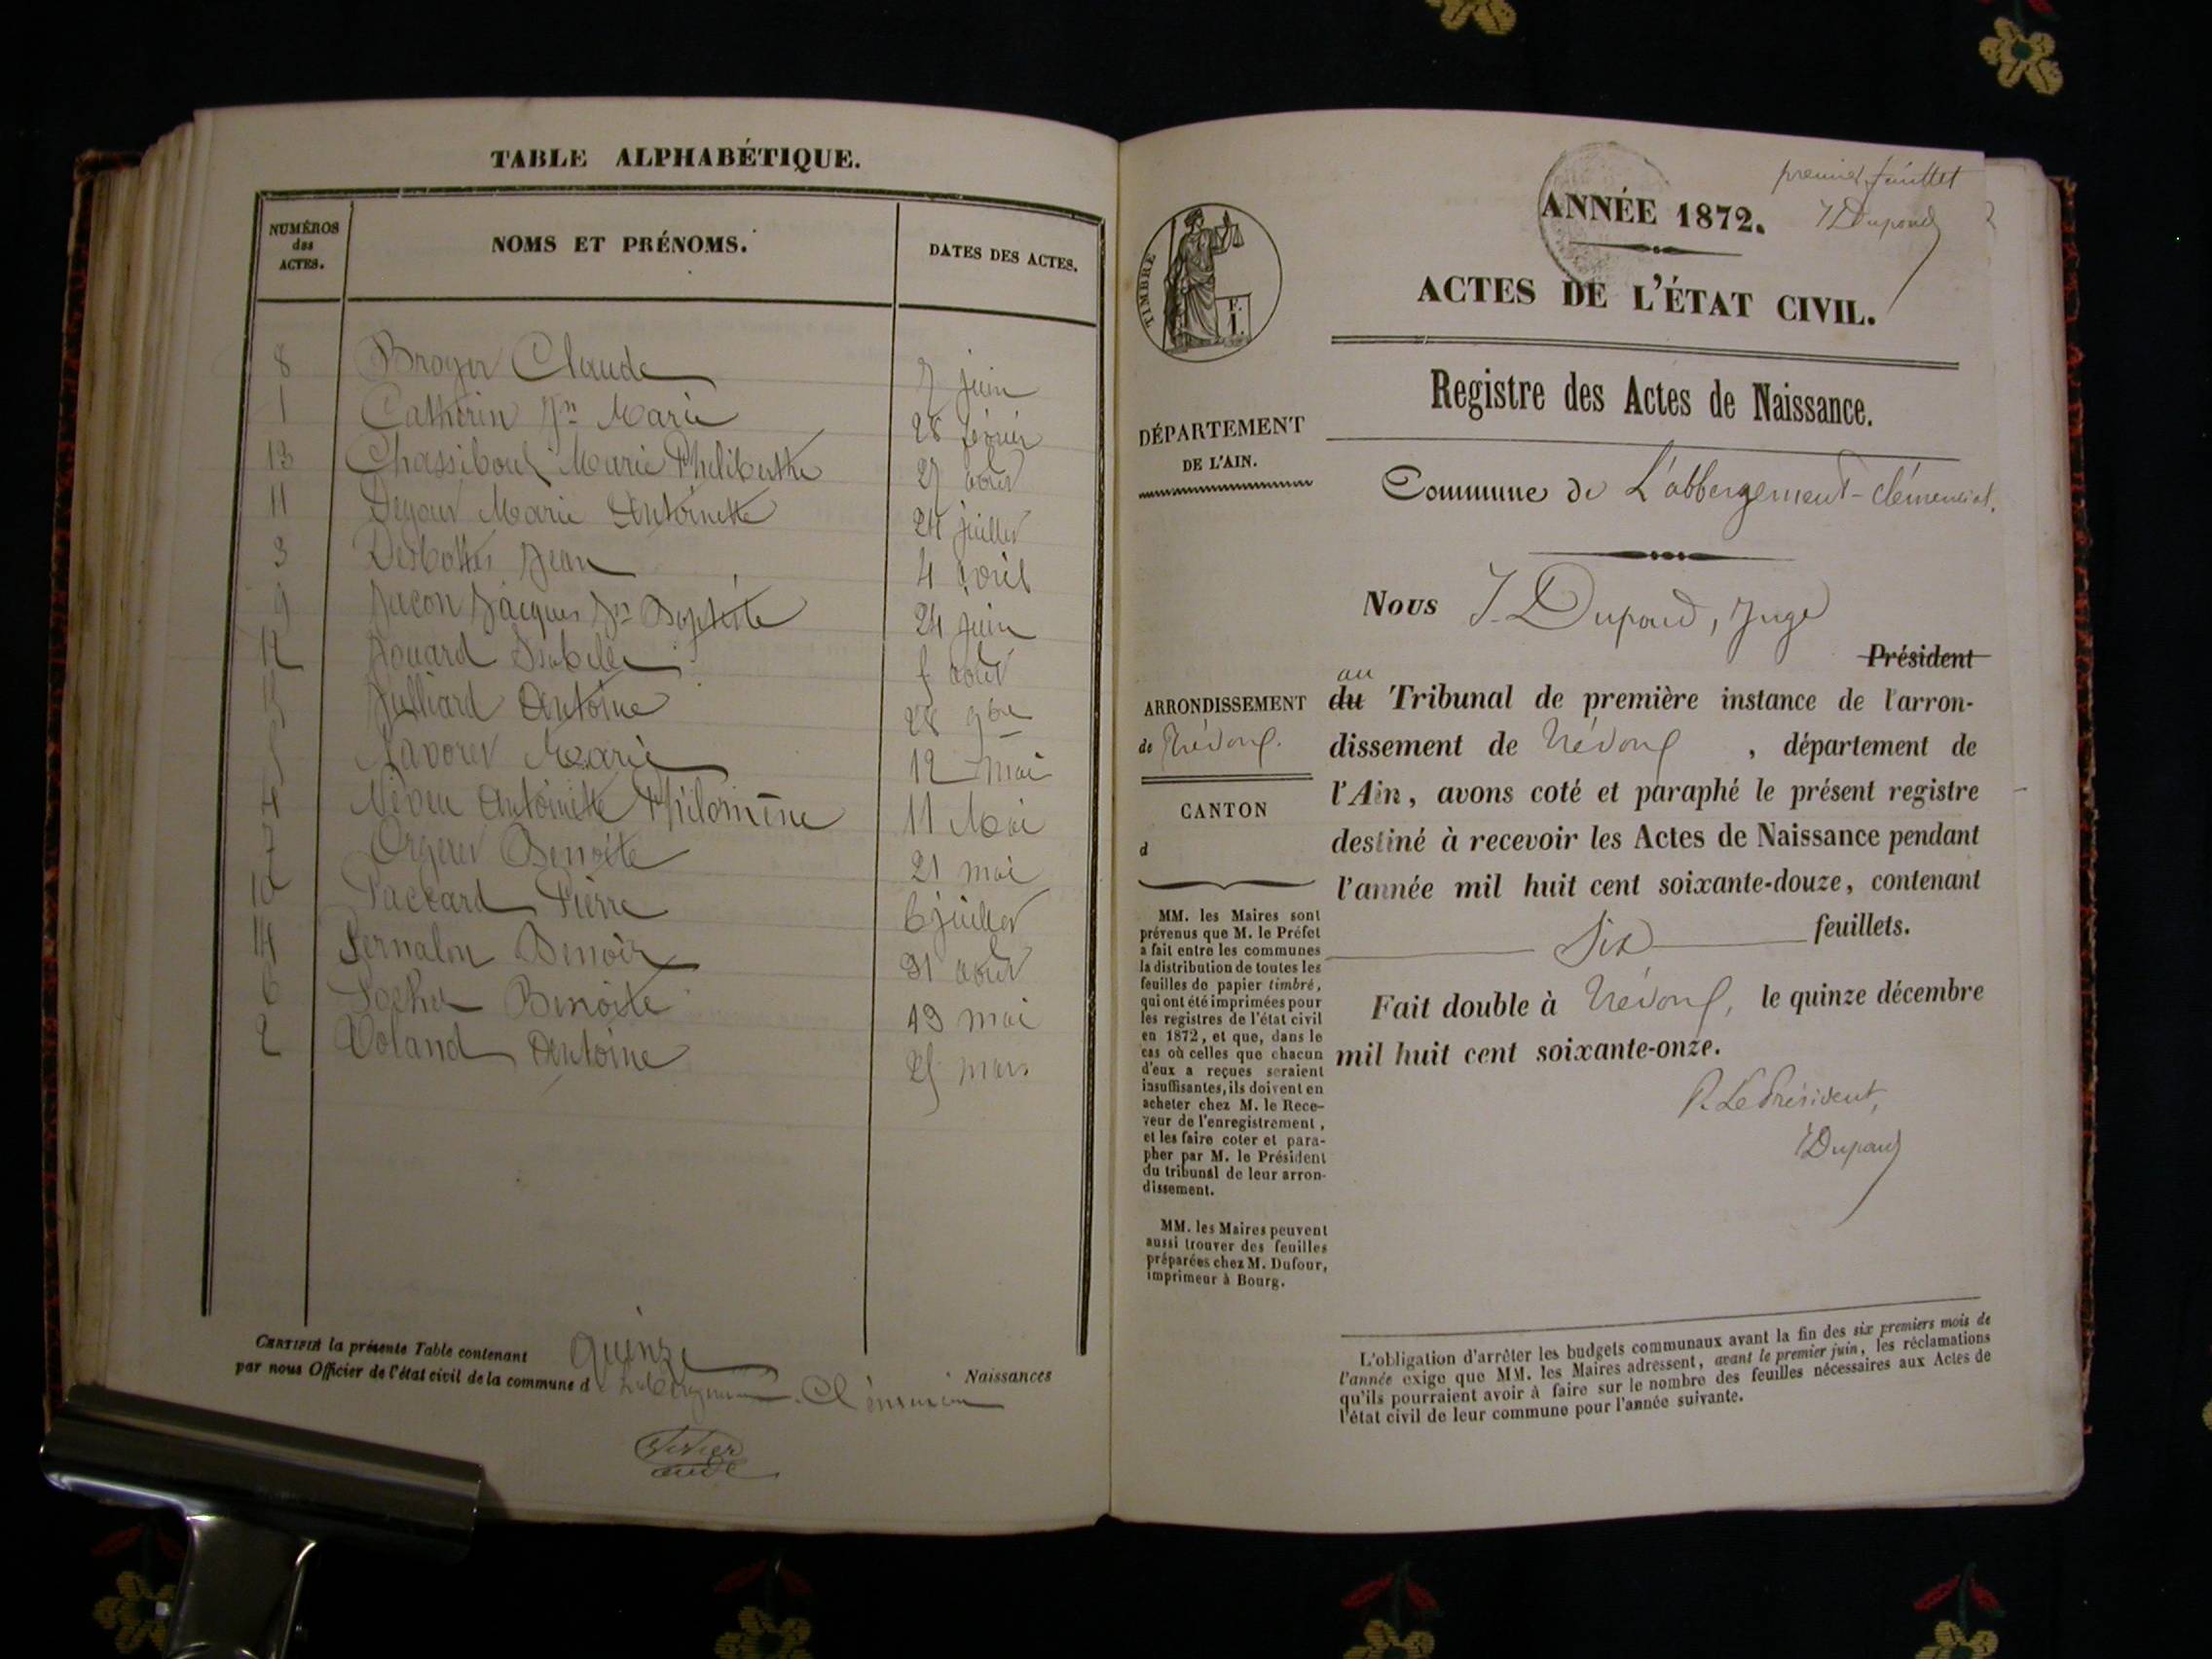 TABLE ALPHABÉTIQUE.
NUMÉROS
des
ACTES.
NOMS ET PRÉNOMS.
DATES DES ACTES.
8 Broyer Claude 7 juin
1 Catherin Jn Marie 28 février
13 Marie Philiberthe 27 août
11 Marie Antoinette 24 juillet
3 Desbottes Jean 4 avril
9 Jucon Jacques Jn Baptiste 24 juin
12 Jouard Isabelle août
15 Julliard Antoine 28 9bre
5 Navoret Marie 12 mai
4 Neveu Antoinette Philomène 11 Mai
7 Orgeret Benoite 21 mai
10 Paccard Pierre 6 juillet
14 Pernalon Benoit 31 août
6 Benoite 19 mai
2 Voland Antoine 25 mars
CERTIFIÉ la présente Table contenant quinze Naissances
par nous Officier de l'état civil de la commune d Clémencia
premier feuillet
JDupond
ANNÉE 1872.
ACTES DE L'ÉTAT CIVIL.
TIMBRE
F.
I.
Registre des Actes de Naissance.
DÉPARTEMENT
DE L'AIN.
Commune de L'abbergement-clémenciat.
Nous J. Dupond, Juge
Président
au
du Tribunal de première instance de l'arron-
dissement de Trévoux, département de
l'Ain, avons coté et paraphé le présent registre
destiné à recevoir les Actes de Naissance pendant
l'année mil huit cent soixante-douze, contenant
Six feuillets.
Fait double à Trévoux, le quinze décembre
mil huit cent soixante-onze.
P. Le Président,
JDupond
ARRONDISSEMENT
de Trévoux.
CANTON
d
MM. les Maires sont
prévenus que M. le Préfet
a fait entre les communes
la distribution de toutes les
feuilles de papier timbré,
qui ont été imprimées pour
les registres de l'état civil
en 1872, et que, dans le
cas où celles que chacun
d'eux a reçues seraient
insuffisantes, ils doivent en
acheter chez M. le Rece-
veur de l'enregistrement,
et les faire coter et para-
pher par M. le Président
du tribunal de leur arron-
dissement.
MM. les Maires peuvent
aussi trouver des feuilles
préparées chez M. Dufour,
imprimeur à Bourg.
L'obligation d'arrêter les budgets communaux avant la fin des six premiers mois de
l'année exige que MM. les Maires adressent, avant le premier juin, les réclamations
qu'ils pourraient avoir à faire sur le nombre des feuilles nécessaires aux Actes de
l'état civil de leur commune pour l'année suivante.